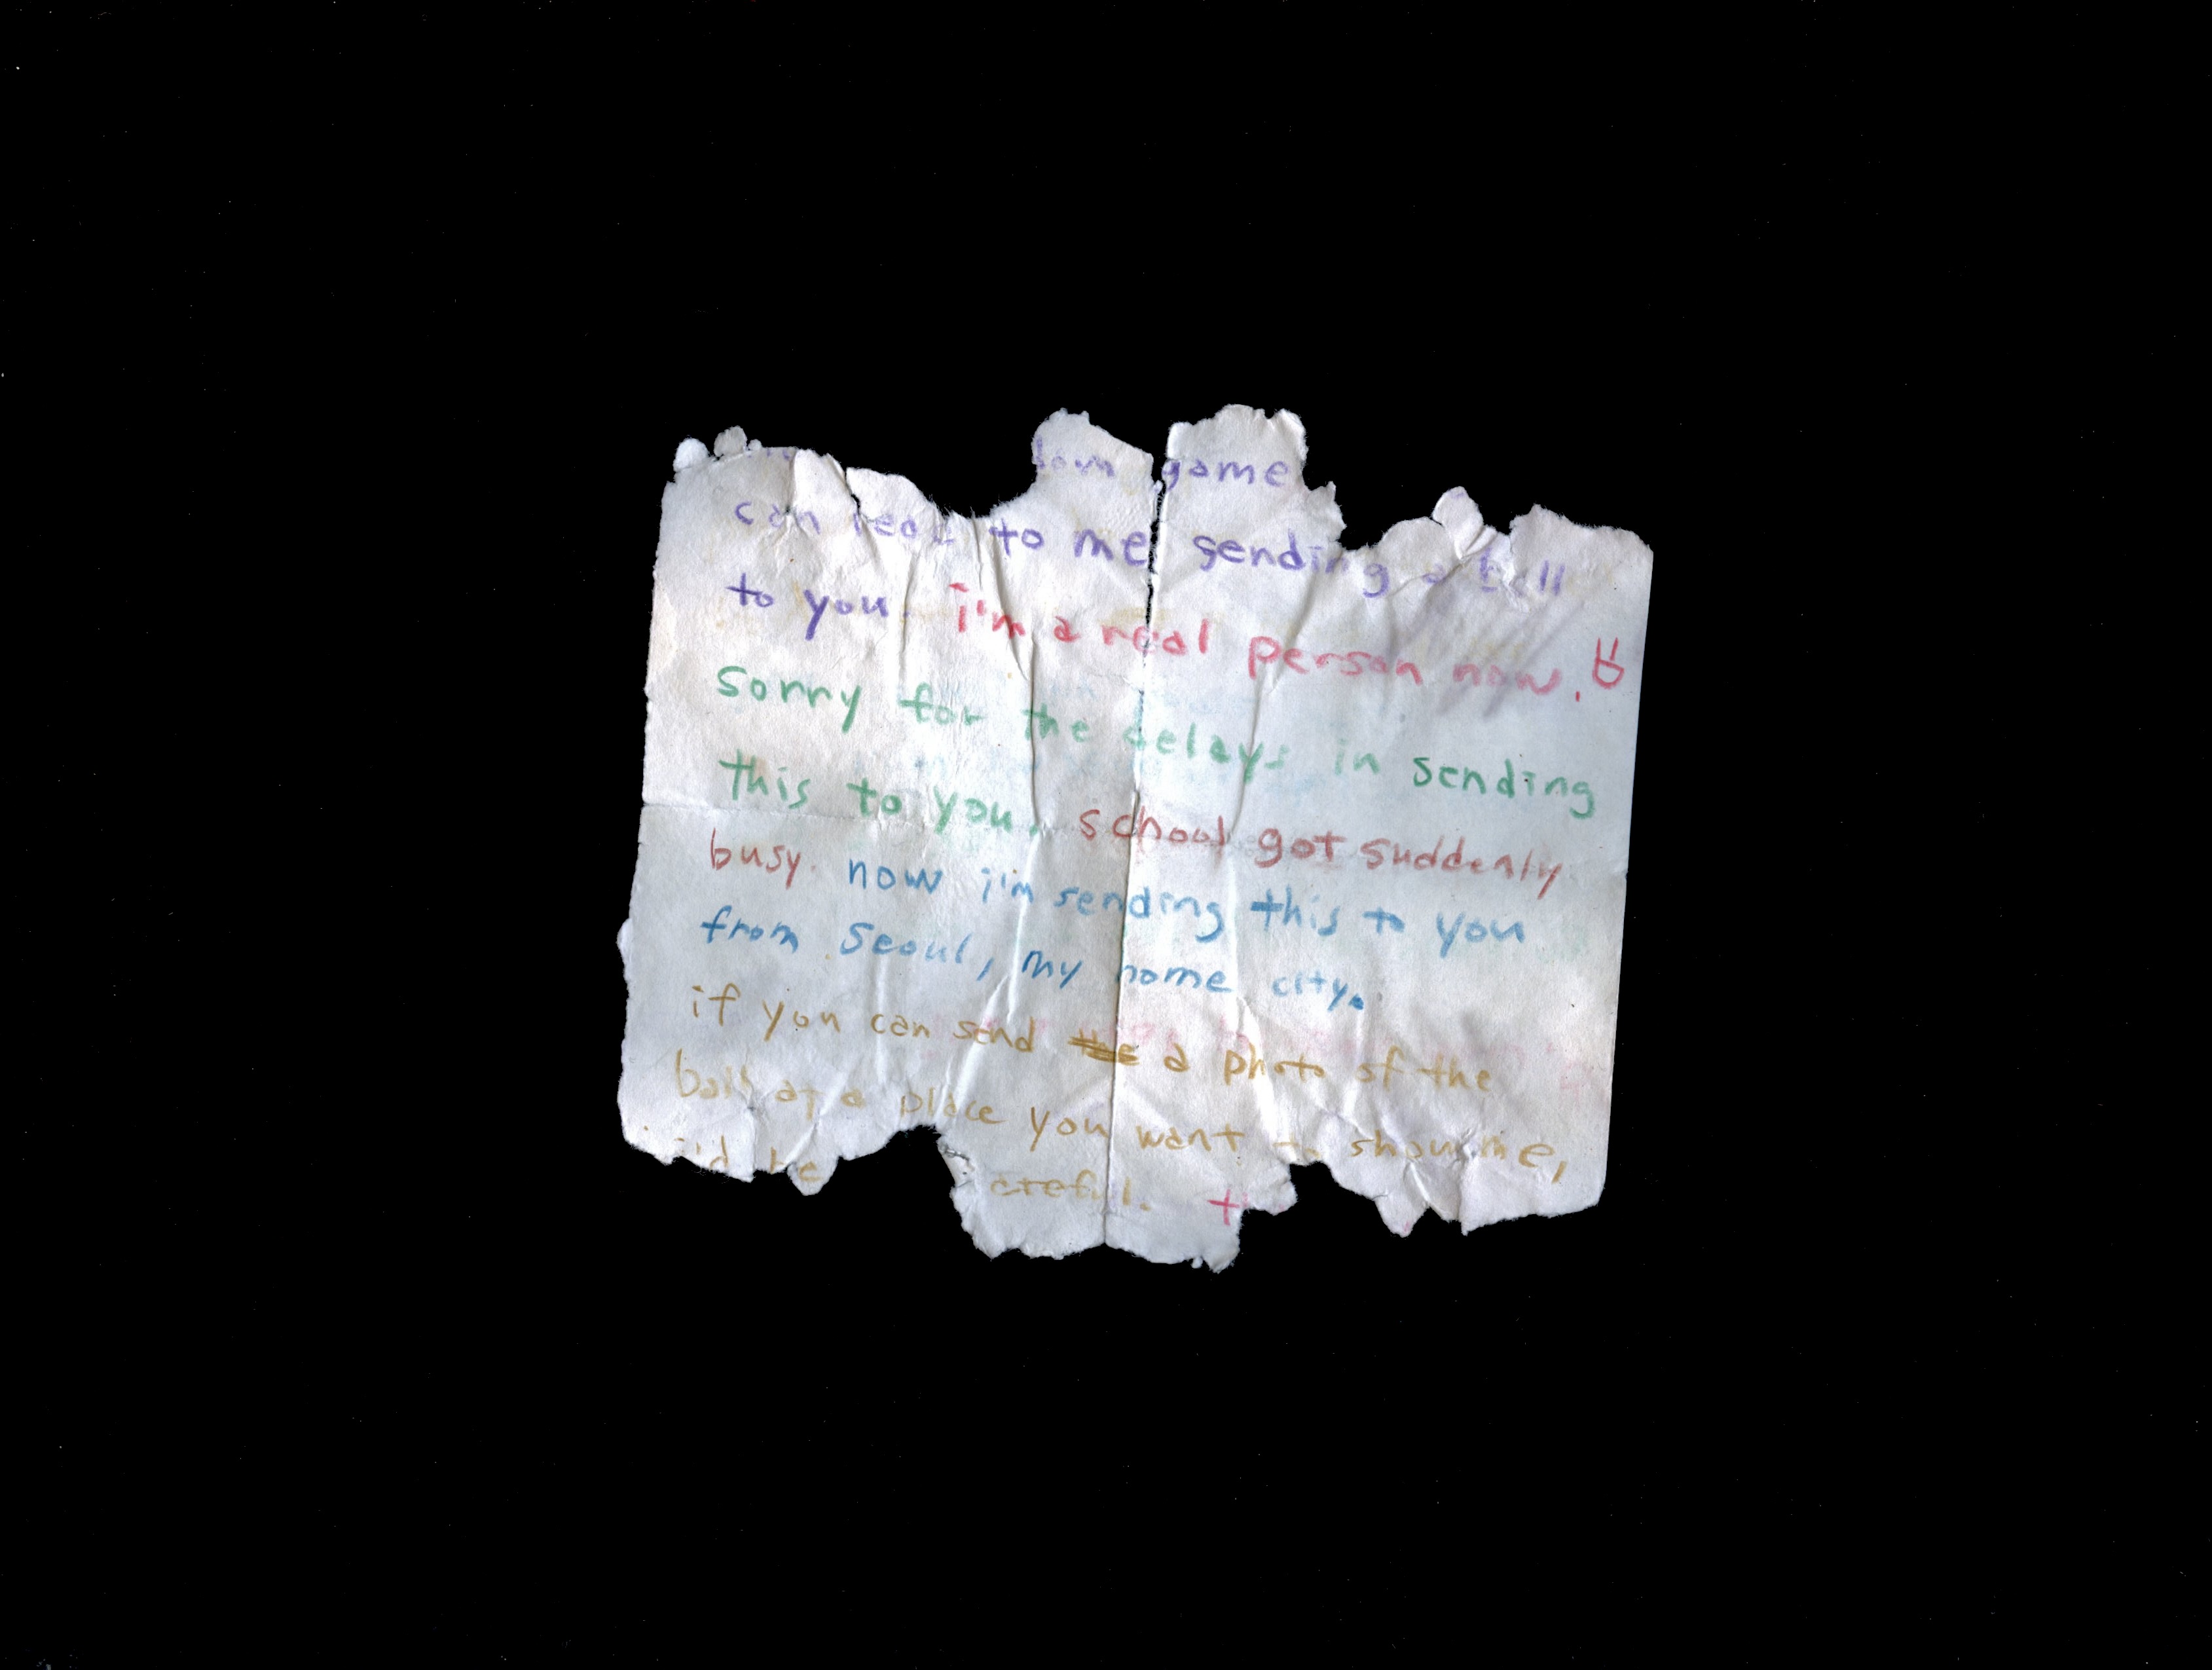 game
can lead to me sending a ball
to you. i'm a real person now.
sorry for the delays in sending
this to you. school got suddenly
busy. now i'm sending this to you
from Seoul, my home city.
if you can send a photo of the
ball at a place you want to show me,